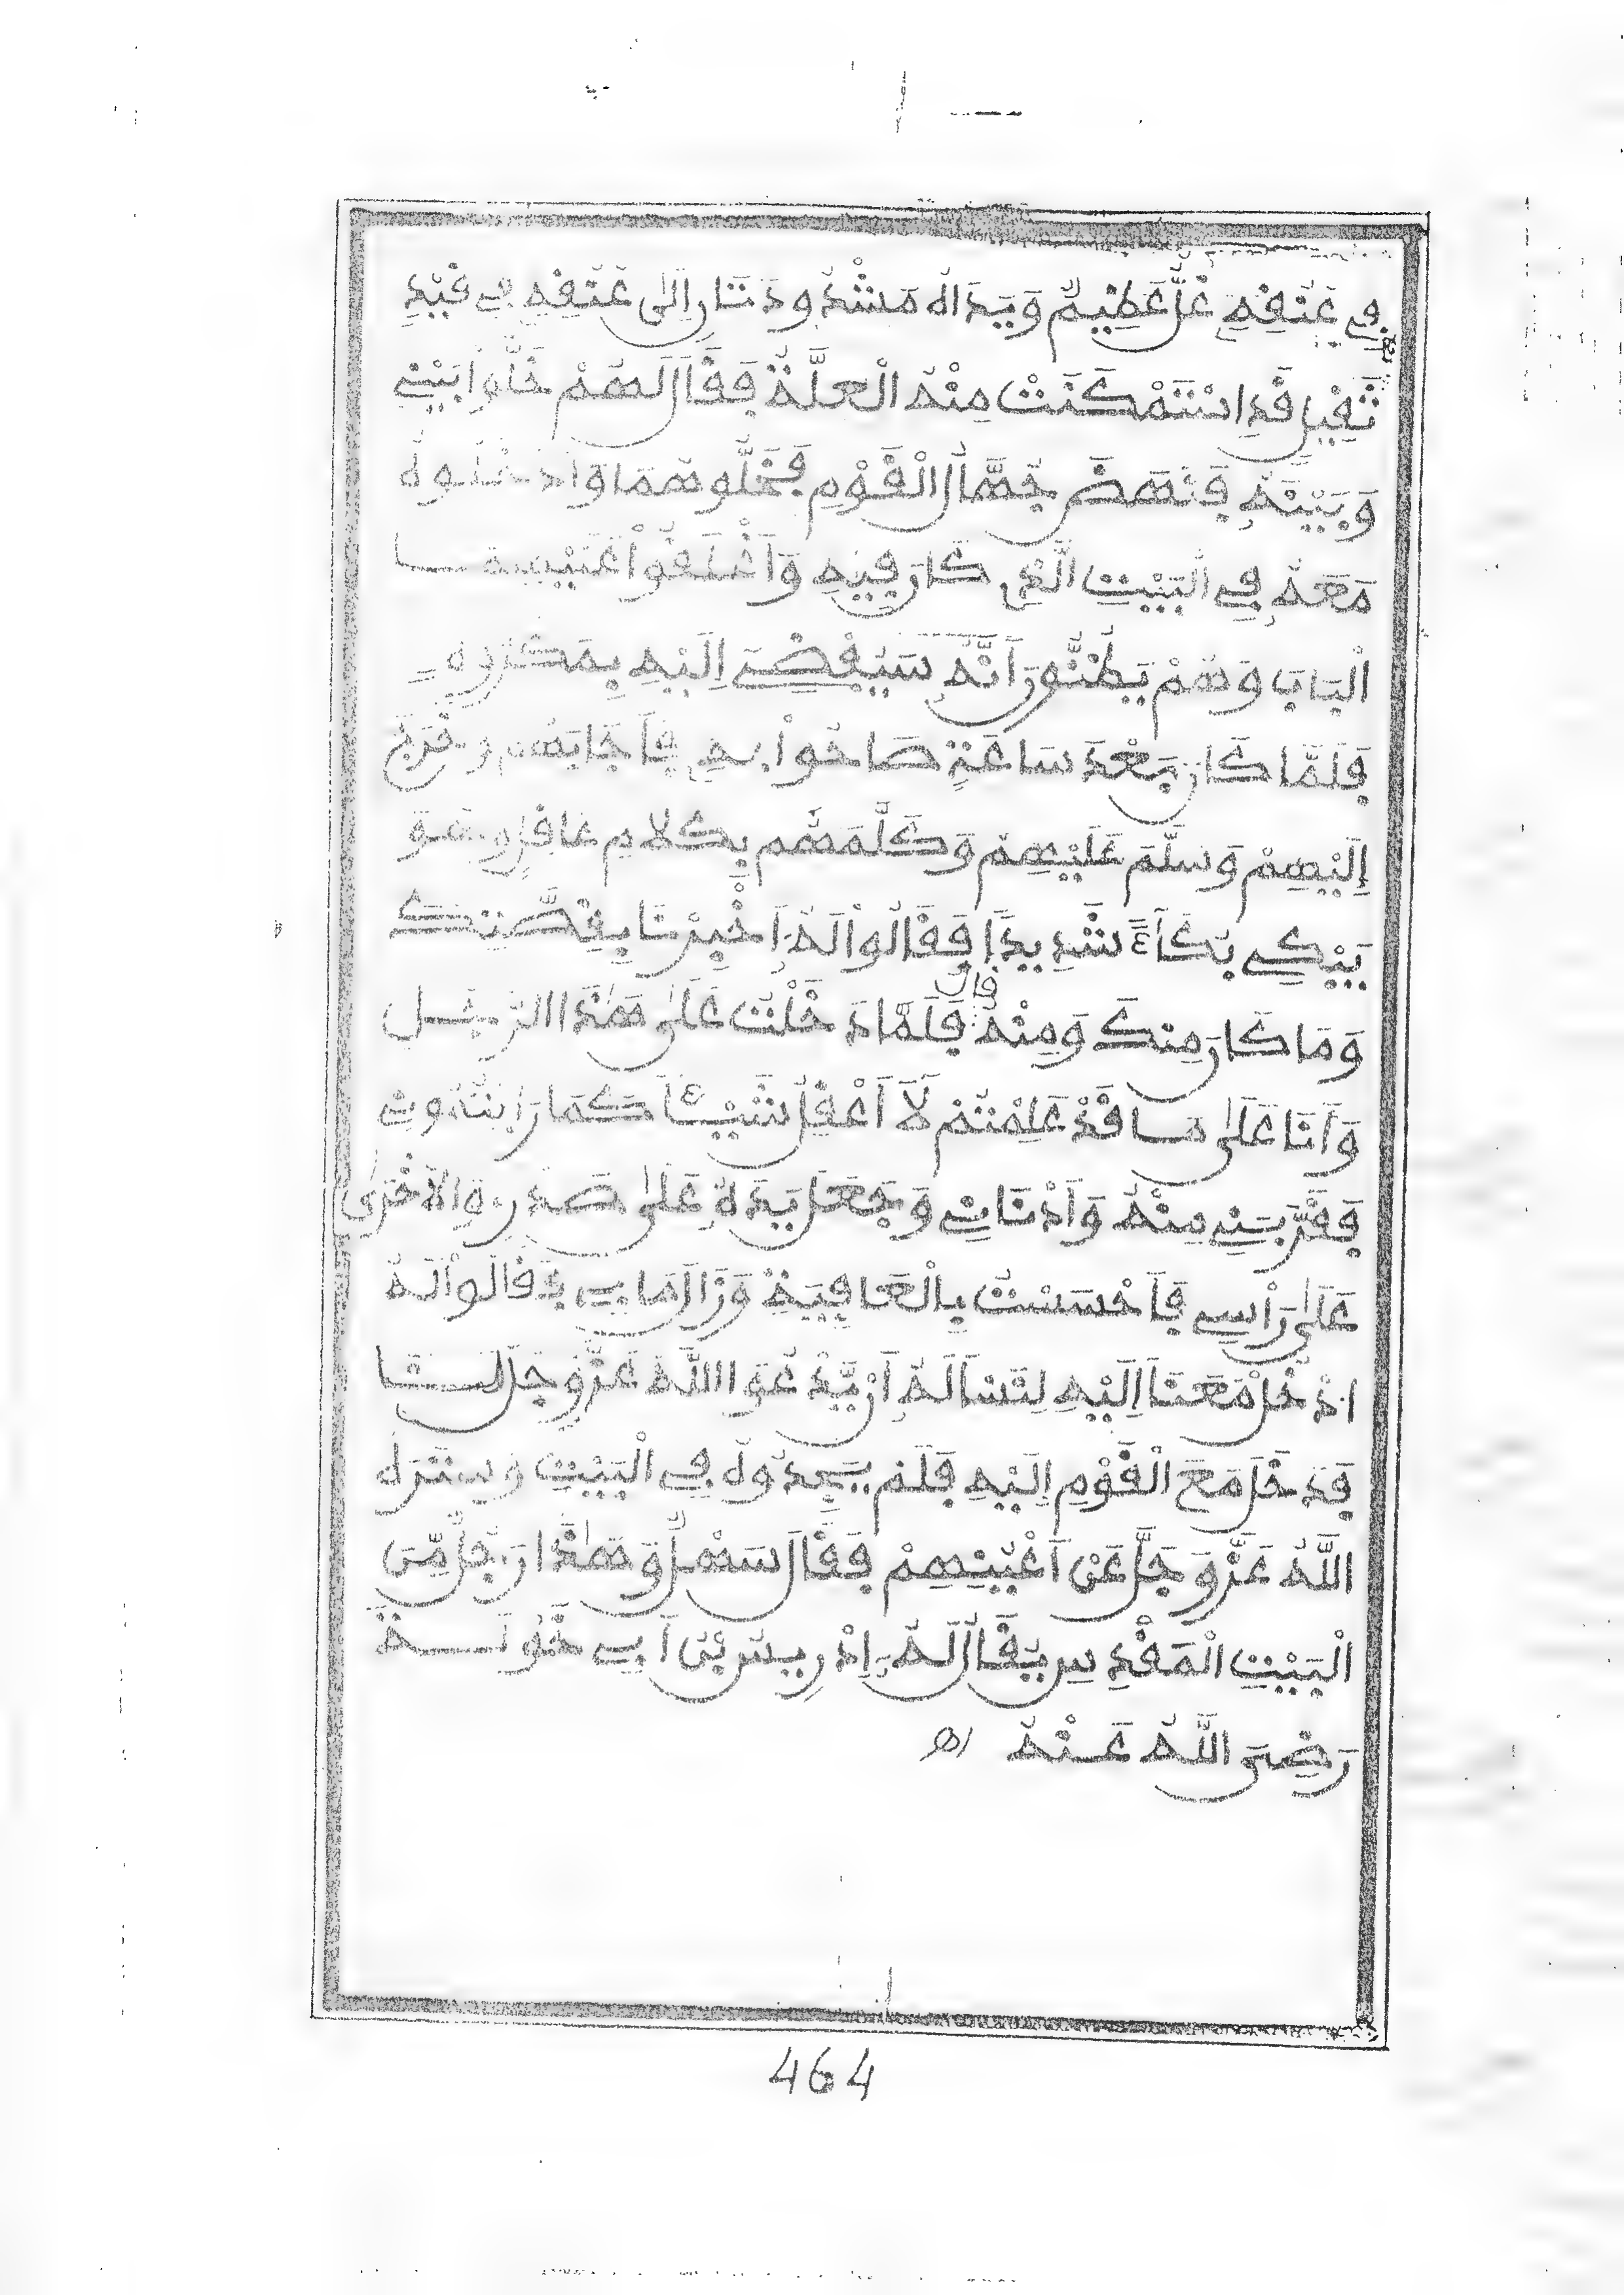 فِي عُنُقِهِ غُلٌّ عَظِيمٌ وَيَدَاهُ مَشْدُودَتَانِ إِلَى عُنُقِهِ فِي قَيْدٍ
ثَقِيلٍ قَدِ اسْتَمْكَنَتْ مِنْهُ الْعِلَّةُ فَقَالَ لَهُمْ خَلُّوا بَيْنِي
وَبَيْنَهُ فَنَهَضَ جُهَّالُ الْقَوْمِ فَخَلُّوهُمَا وَأَدْخَلُوهُ
مَعَهُ فِي الْبَيْتِ الَّذِي كَانَ فِيهِ وَأَغْلَقُوا عَلَيْهِمَا
الْبَابَ وَهُمْ يَظُنُّونَ أَنَّهُ سَيُفْضِي إِلَيْهِ بِمَكْرُوهٍ
فَلَمَّا كَانَ بَعْدَ سَاعَةٍ صَاحُوا بِهِ فَأَجَابَهُمْ وَخَرَجَ
إِلَيْهِمْ وَسَلَّمَ عَلَيْهِمْ وَكَلَّمَهُمْ بِكَلَامِ عَاقِلٍ وَهُوَ
يَبْكِي بُكَاءً شَدِيدًا فَقَالُوا لَهُ أَخْبِرْنَا بِقِصَّتِكَ
وَمَا كَانَ مِنْكَ وَمِنْهُ قال فَلَمَّا دَخَلْتُ عَلَى هَذَا الرَّجُلِ
وَأَنَا عَلَى مَا قَدْ عَلِمْتُمْ لَا أَعْقِلُ شَيْئًا كَمَا رَأَيْتُمُونِي
فَقَرَّبَنِي مِنْهُ وَأَدْنَانِي وَجَعَلَ يَدَهُ عَلَى صَدْرِي وَالْأُخْرَى
عَلَى رَأْسِي فَأَحْسَسْتُ بِالْعَافِيَةِ وَزَالَ مَا بِي فَقَالُوا لَهُ
ادْخُلْ مَعَنَا إِلَيْهِ لِنَسْأَلَهُ أَنْ يَدْعُوَ اللَّهَ عَزَّ وَجَلَّ لَنَا
فَدَخَلَ مَعَ الْقَوْمِ إِلَيْهِ فَلَمْ يَجِدُوهُ فِي الْبَيْتِ وَسَتَرَهُ
اللَّهُ عَزَّ وَجَلَّ عَنْ أَعْيُنِهِمْ فَقَالَ سَهْلٌ وَهَذَا رَجُلٌ مِّنَ
الْبَيْتِ الْمَقْدِسِ يُقَالُ لَهُ إِدْرِيسُ بْنُ أَبِي خَوْلَةَ
رَضِيَ اللَّهُ عَنْهُ اهـ
464